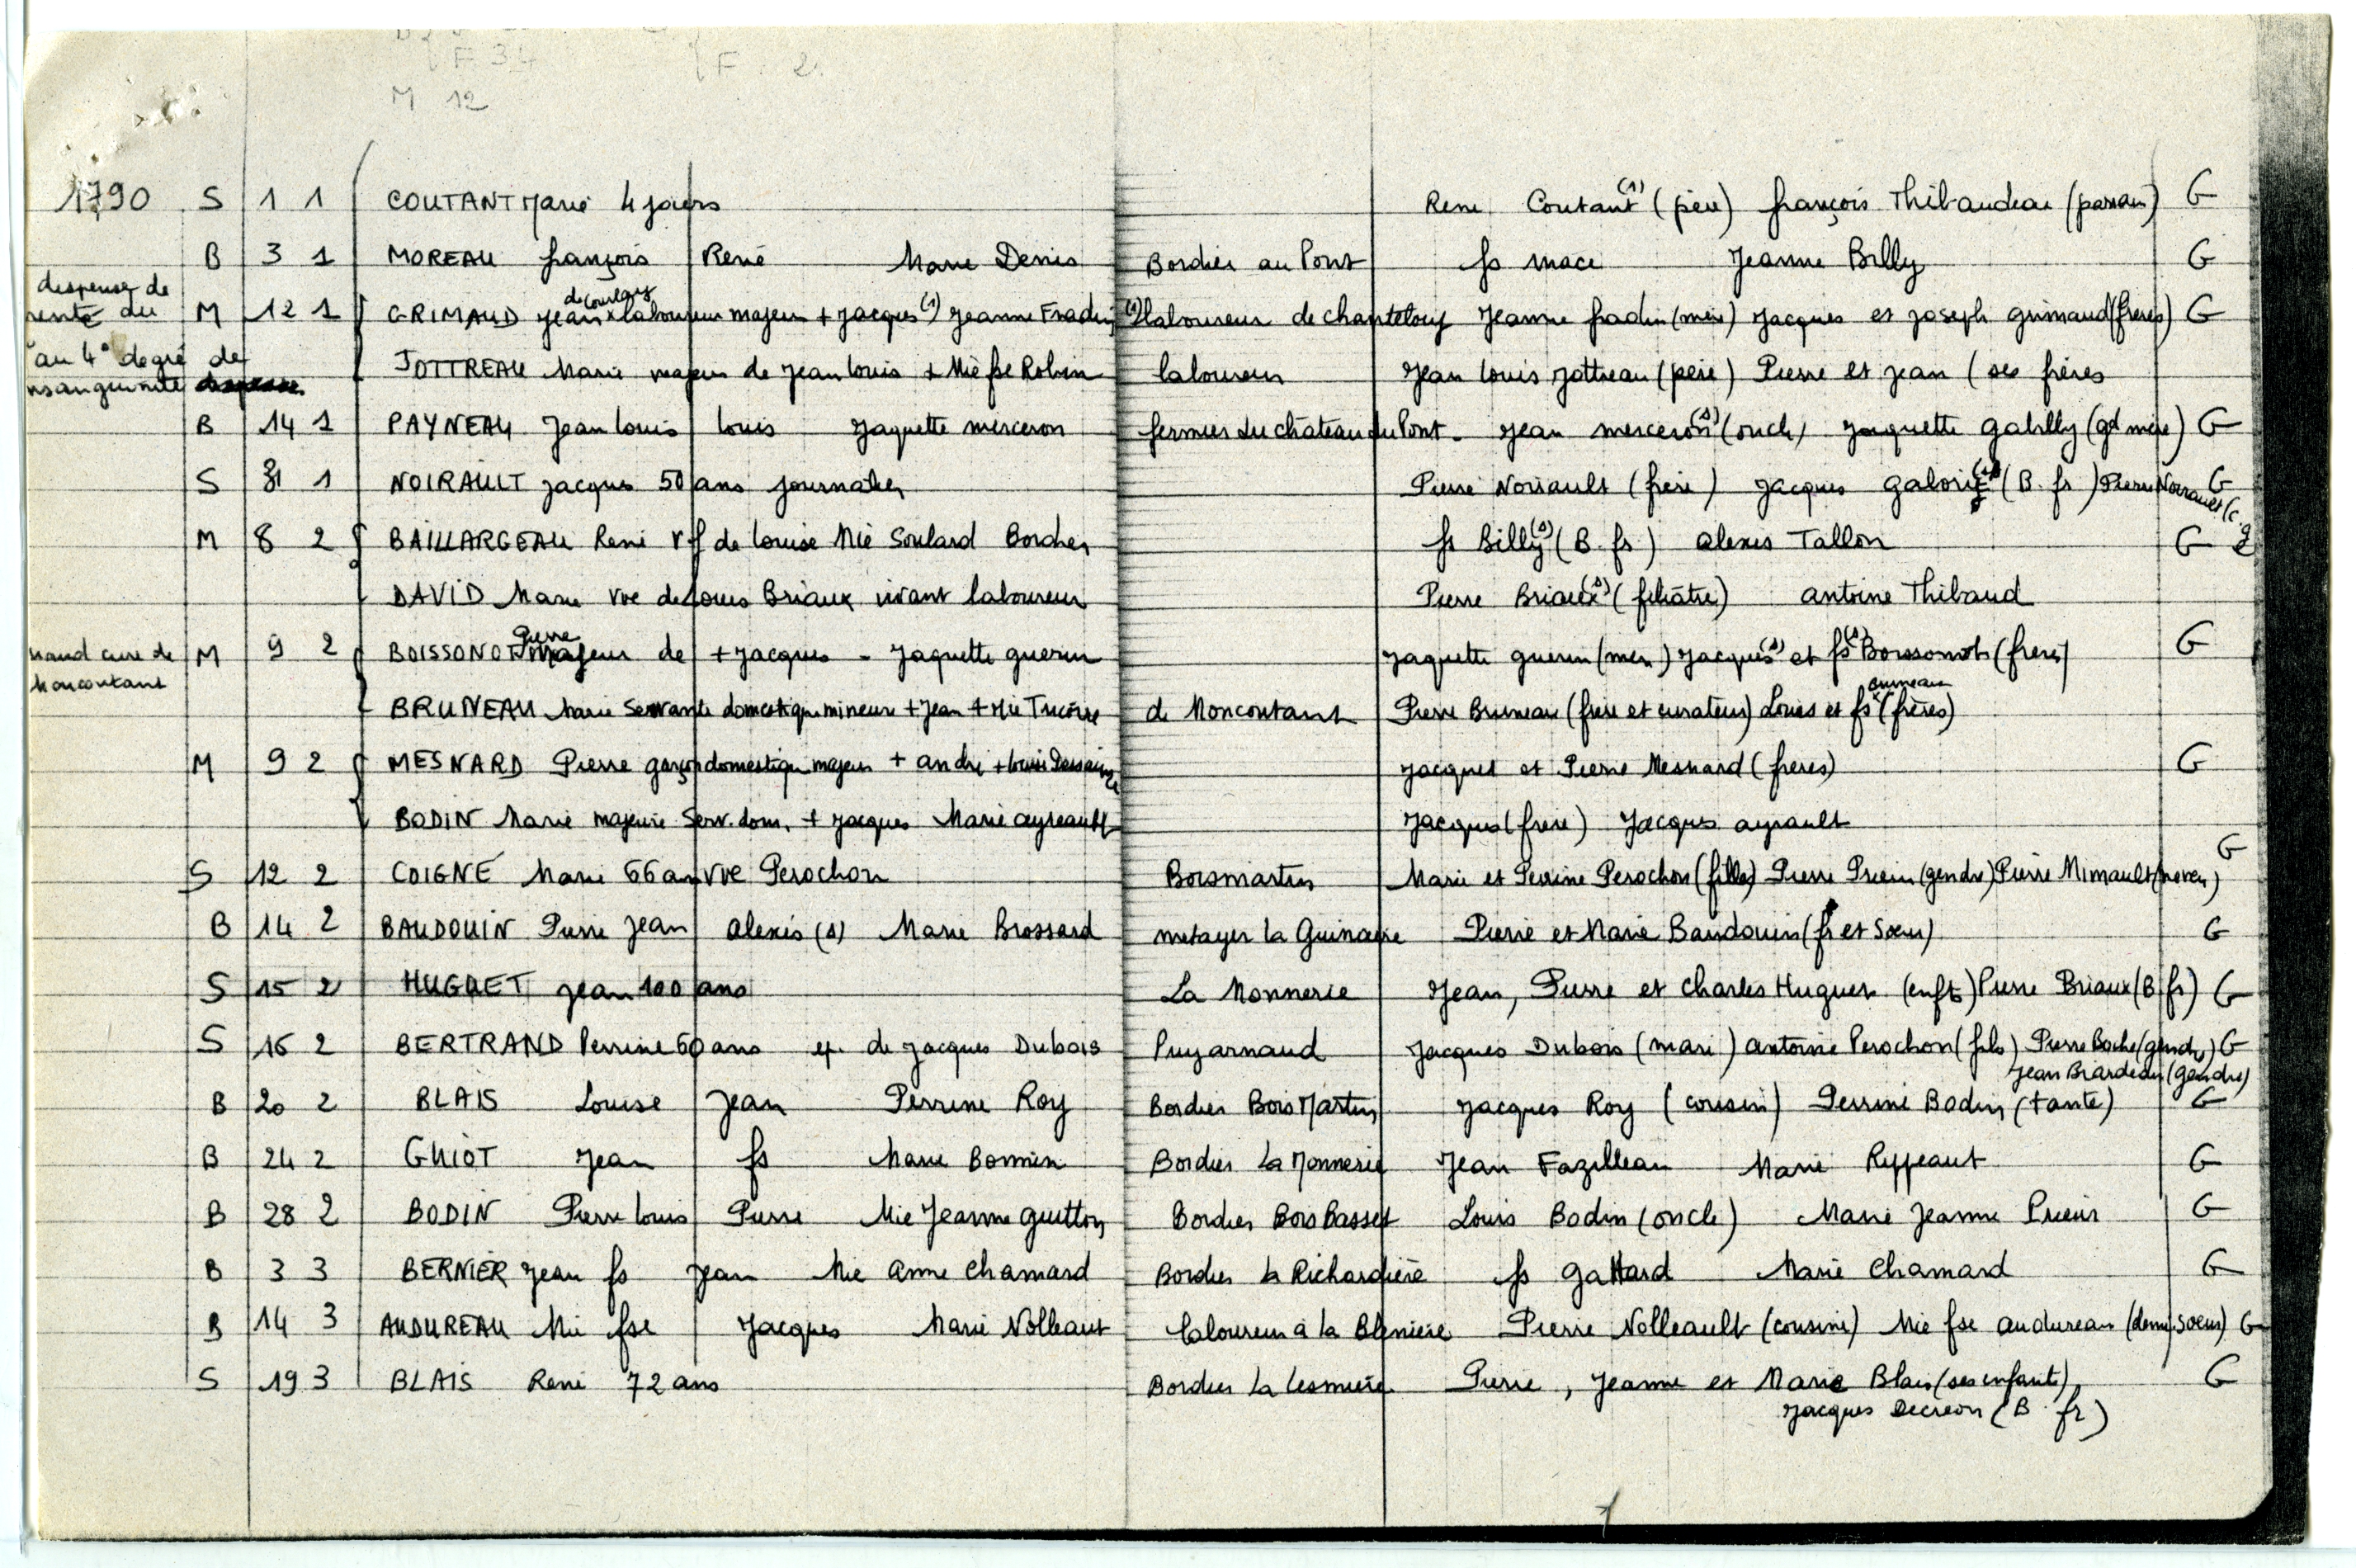 F 34 F. 2
M 12
1790 S 1 1 COUTANT Marie 4 jours Rene Coutant (1) (père) françois Thibaudeau (parrain) G
B 3 1 MOREAU françois René Marie Denis Bordier au Pont fs mace Jeanne Billy G
dispense de
de courlay
rente du M 12 1 GRIMAUD Jean x laboureur majeur + Jacques (1) Jeanne Fradin (1) laboureur de chanteloup Jeanne fradin (mère) Jacques et Joseph grimaud (freres) G
au 4° degré de JOTTREAU Marie majeur de Jean Louis + Mie fse Robin laboureur Jean Louis Jottreau (père) Pierre et Jean (ses frères
nsanguinité
B 14 1 PAYNEAU Jean Louis Louis Jaquette merceron fermier du château du Pont - Jean merceron (1) (oncle) Jaquette gabilly (gd mère) G
S 31 1 NOIRAULT Jacques 50 ans journalier Pierre Noirault (frère) Jacques (1) (B. fr) Pierre Noirault (c. g G
M 8 2 BAILLARGEAU René vf de Louise Mie Soulard Bordier fs Billy (1) (B. fr) alexis Tallon G
DAVID Marie vve de Louis Briaux vivant laboureur Pierre Briaux (1) (filiâtre) antoine Thibaud
naud cure de M 9 2 BOISSONOT Pierre majeur de + Jacques - Jaquette guerin Jaquette guerin (mère) Jacques (1) et fs (1) Boissonot (freres) G
Moncoutant
BRUNEAU Marie Servante domestique mineure + Jean + Mie de Moncoutant Pierre Bruneau (frère et curateur) Louis et fs bruneau (frères)
M 9 2 MESNARD Pierre garçon domestique majeur + andré + Louise Jacques et Pierre Mesnard (freres) G
BODIN Marie majeure Serv. dom. + Jacques Marie ayreault Jacques (frere) Jacques ayrault
S 12 2 COIGNE Marie 66 an vve Perochon Boismartin Marie et Perrine Perochon (filles) Pierre Prieur (gendre) Pierre Mimault (neveu) G
B 14 2 BAUDOUIN Pierre Jean alexis (1) Marie Brossard metayer la Guinaire Pierre et Marie Baudouin (fr et Sœur) G
S 15 2 HUGUET Jean 100 ans La Monnerie Jean, Pierre et Charles Huguet (enfts) Pierre Briaux (B. fr) G
S 16 2 BERTRAND Perrine 60 ans ep. de Jacques Dubois Puyarnaud Jacques Dubois (mari) antoine Perochon (fils) Pierre Boche (gendre) G
Jean Brardeau (gendre)
B 20 2 BLAIS Louise Jean Perrine Roy Bordier Bois Martin Jacques Roy (cousin) Perrine Bodin (tante) G
B 24 2 GUIOT Jean fs Marie Bonnin Bordier La Monnerie Jean Fazilleau Marie Rippeaut G
B 28 2 BODIN Pierre Louis Pierre Mie Jeanne guitton Bordier Bois Basset Louis Bodin (oncle) Marie Jeanne Prieur G
B 3 3 BERNIER Jean fs Jean Mie Anne Chamard Bordier la Richardière fs gattard Marie Chamard G
B 14 3 AUDUREAU Mie fse Jacques Marie Nolleaut laboureur à la Pierre Nolleault (cousin) Mie fse audureau (demi sœur) G
S 19 3 BLAIS René 72 ans Bordier Pierre, Jeanne et Marie Blais (ses enfants), G
Jacques Decreon (B. fr)